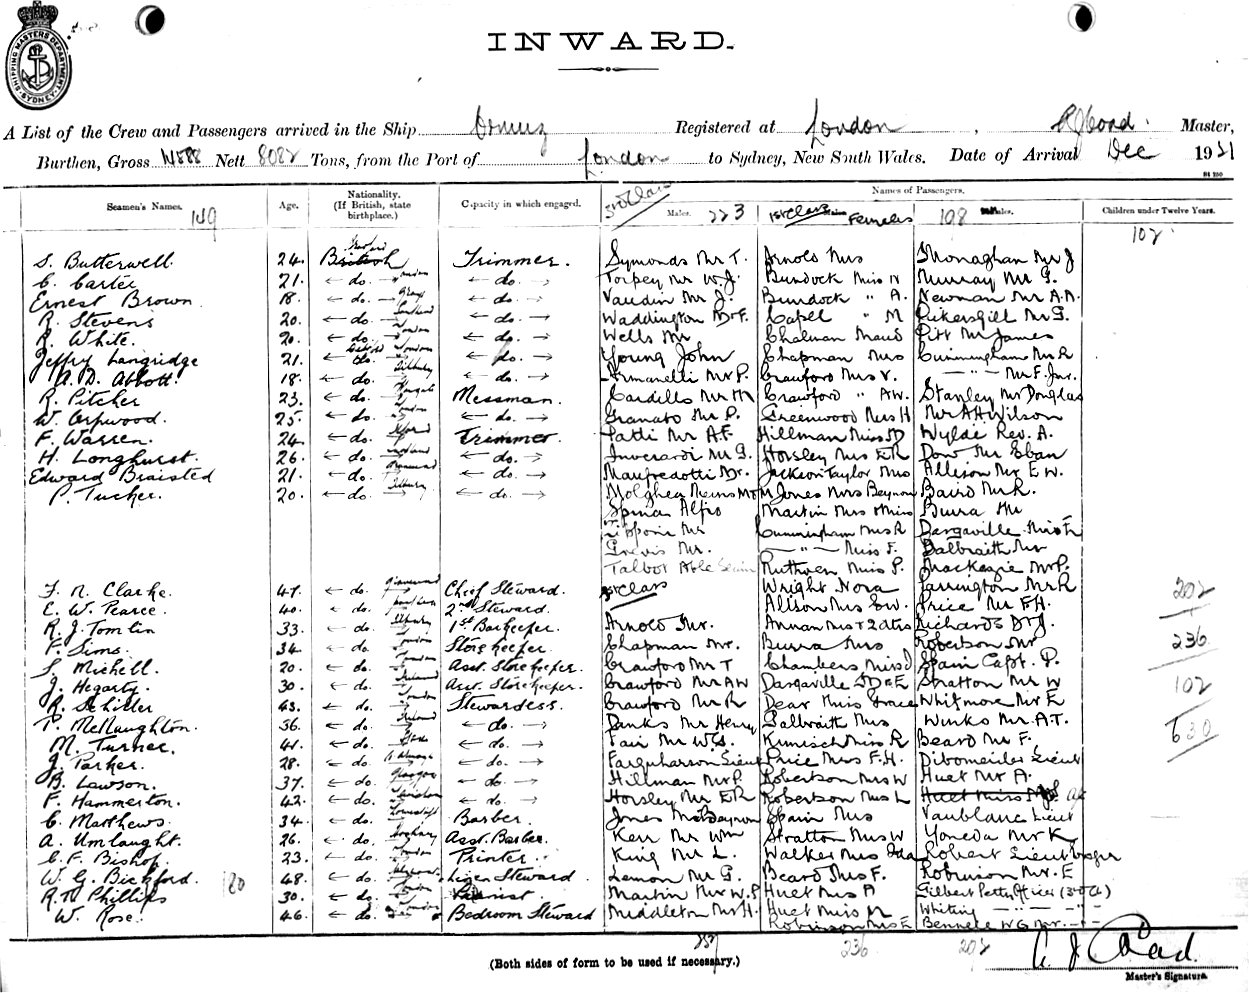 SHIPPING MASTERS DEPARTMENT SYDNEY
INWARD.
A List of the Crew and Passengers arrived in the Ship Ormuz Registered at London , Master,
Burthen, Gross Nett 8082 Tons, from the Port of London to Sydney, New South Wales. Date of Arrival Dec 1921
Seamen's Names. Age. Nationality. (If British, state birthplace.) Capacity in which engaged. 3rd Class Males. 223 Names of Passengers. 1st Class Females 108 Children under Twelve Years.
102
S. Butterwell. 24. British Trimmer. Symonds Mr T. Arnold Mrs Monaghan Mr J
C. Carter 21. ← do. → ← do. → Torpey Mr W.J. Burdock Miss N Murray Mr G.
Ernest Brown. 18. ← do. → ← do. → Vaudin Mr J. Burdock " A. Newman Mr A.N.
R. Stevens 20. ← do. → ← do. → Waddington Mr F. Capel " M Pickersgill Mr G.
R. White. 20. ← do. → London ← do. → Wells Mr Chalman Maud Pitt Mr James
Jeffry Langridge 21. ← do. → London ← do. → Young John Chapman Mrs Cunningham Mr R
A. D. Abbott. 18. ← do. → Tilbury ← do. → Armanelli Mr P. Crawford Mrs V. — " — Mr F. Jnr.
R. Pitcher 23. ← do. → Margate Messman. Cardillo Mr M Crawford " A.W. Stanley Mr Douglas
W. Orpwood. 25. ← do. → London ← do. → Granato Mr P. Greenwood Mrs H Mr A H Wilson
F. Warren. 24. ← do. → Trimmer. Patti Mr A.F. Hillman Miss D Wylde Rev. A.
H. Longhurst. 26. ← do. → ← do. → Inverardi Mr G. Horsley Mrs E R Dow Mr Eban
Edward Braisted 21. ← do. → ← do. → Manfredotti Mr. Jackson Taylor Mrs Allison Mr E W.
P. Tucker. 20. ← do. → Tilbury ← do. → Jones Mrs Beynon Baird Mr R.
Spina Alfio Martin Mrs Burra Mr
Mr Cunningham Mrs R Dargaville Miss E
Mr. — " — Miss F. Galbraith Mr
Talbot Able Seam Ruthven Miss P. Mackenzie Mr P.
F. N. Clarke. 47. ← do. → Chief Steward. 1st Class Wright Nora Farrington Mr R 202
E. W. Pearce. 40. ← do. → 2nd Steward. Allison Mrs E W. Price Mr F.H.
R. J. Tomlin 33. ← do. → Tilbury 1st Barkeeper. Arnold Mr. Annan Mrs + 2 dtrs Richards Dr J. 236
F. Sims. 34 ← do. → London Storekeeper. Chapman Mr. Burra Mrs Robertson Mr
S. Michell. 20. ← do. → London Asst. Storekeeper. Crawford Mr T Chambers Miss D Spain Capt. P.
J. Hegarty. 30. ← do. → Ireland Asst. Storekeeper. Crawford Mr A W Dargaville E Stratton Mr W 102
R. Schiller 43. ← do. → London Stewardess. Crawford Mr R Dear Miss Grace Whitmore Mr E
P. McNaughton. 36. ← do. → Ireland ← do. → Danks Mr Henry Galbraith Mrs Winks Mr A.T. 630
M. Turner. 41. ← do. → ← do. → Fair Mr W.S. Kimisch Miss R Beard Mr F.
J. Parker. 28. ← do. → ← do. → Farquharson Lieut Price Mrs F.H. Dibomailer Lieut
B. Lawson. 37. ← do. → Glasgow ← do. → Hillman Mr P. Robertson Mrs W Huet Mr A.
F. Hammerton. 42. ← do. → ← do. → Horsley Mr E R Robertson Miss L Huet Miss
C. Matthews. 34. ← do. → Barber. Jones Mr Beynon Spain Mrs Vaublanc Lieut
A. Umlaught. 26. ← do. → Asst. Barber. Kerr Mr Wm Stratton Mrs W Yoneda Mr K
C. F. Bishop. 23. ← do. → London Printer. King Mr L. Walker Mrs Ida Robert Lieut
W. G. Bickford. 180 48. ← do. → Linen Steward Lemon Mr G. Beard Mrs F. Robinson Mr. E
R. N. Phillips 30. ← do. → London Pianist. Martin Mr W.P. Huet Mrs A Gilbert Petty Officer (3rd Cl)
W. Rose. 46. ← do. → Bedroom Steward Middleton Mr H. Huet Miss M Whiting — " — " — "
Robinson Mrs E Bennett W G Mr. — " —
257 236 202
(Both sides of form to be used if necessary.)
Master's Signature.